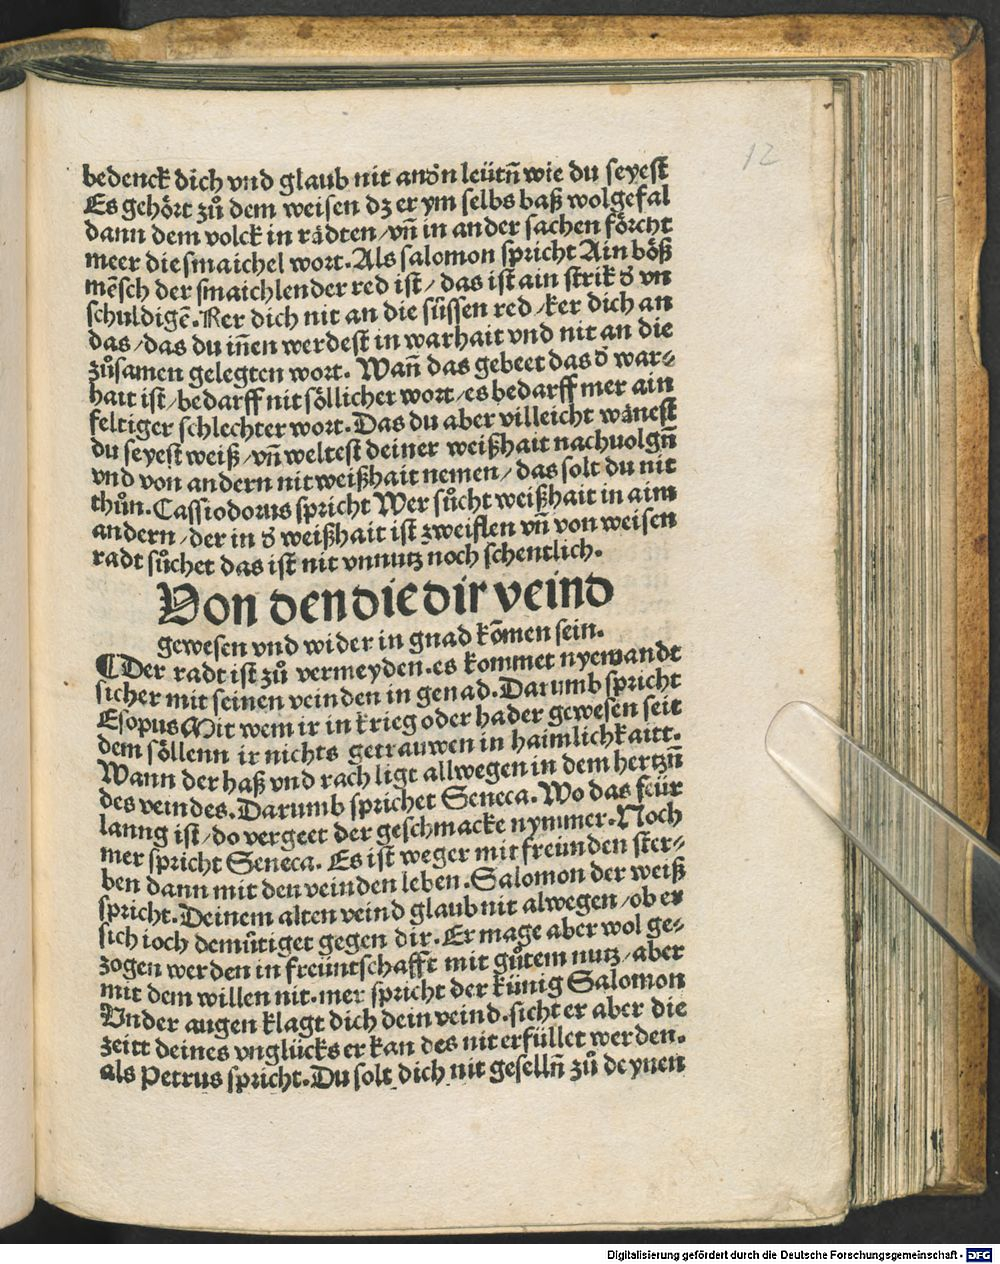 12
bedenck dich vnd glaub nit andn̄ leütn̄ wie du seyest
Es gehört zů dem weisen dz er ym selbs baß wolgefal
dann dem volck in rädten / vn̄ in ander sachen förcht
meer die smaichel wort. Als salomon spricht Ain böß
mēsch der smaichlender red ist / das ist ain strik d̄ vn
schuldigē. Ker dich nit an die süssen red / ker dich an
das / das du in̄en werdest in warhait vnd nit an die
zůsamen gelegten wort. Wan̄ das gebeet das d̄ war⸗
hait ist / bedarff nit söllicher wort / es bedarff mer ain
feltiger schlechter wort. Das du aber villeicht wänest
du seyest weiß / vn̄ weltest deiner weißhait nachuolgn̄
vnd von andern nit weißhait nemen / das solt du nit
thůn. Cassiodorus spricht Wer sůcht weißhait in aim
andern / der in d̄ weißhait ist zweiflen vn̄ von weisen
radt sůchet das ist nit vnnutz noch schentlich.
Von den die dir veind
gewesen vnd wider in gnad kōmen sein.
¶ Der radt ist zů vermeyden. es kommet nyemandt
sicher mit seinen veinden in genad. Darumb spricht
Esopus Mit wem ir in krieg oder hader gewesen seit
dem söllenn ir nichts getrauwen in haimlichkaitt.
Wann der haß vnd rach ligt allwegen in dem hertzn̄
des veindes. Darumb sprichet Seneca. Wo das feür
lanng ist / do vergeet der geschmacke nymmer. Noch
mer spricht Seneca. Es ist weger mit freunden ster⸗
ben dann mit den veinden leben. Salomon der weiß
spricht. Deinem alten veind glaub nit alwegen / ob er
sich ioch demütiget gegen dir. Er mage aber wol ge⸗
zogen werden in freüntschafft mit gůtem nutz / aber
mit dem willen nit. mer spricht der künig Salomon
Vnder augen klagt dich dein veind. sicht er aber die
zeitt deines vnglücks er kan des nit erfüllet werden.
als Petrus spricht. Du solt dich nit geselln̄ zů deynen
Digitalisierung gefördert durch die Deutsche Forschungsgemeinschaft - DFG